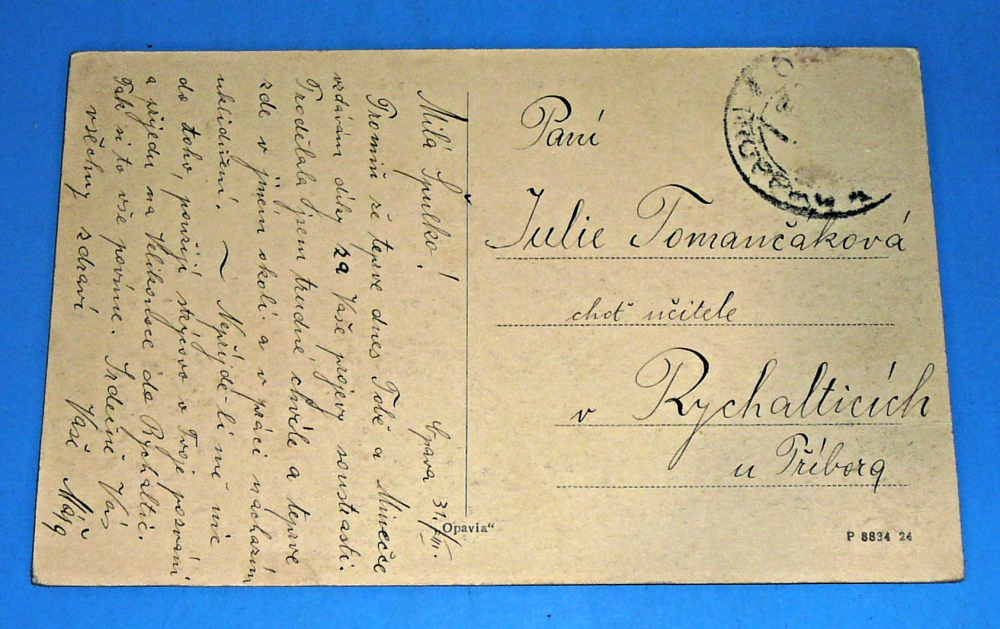 Milá Špulko!
Opava 31./III.
Promiň že teprve dnes Tobě a Minečce
vzdávám díky za Vaše projevy soustrasti.
Prodělala jsem trudné chvíle a teprve
zde v jiném okolí a v práci nacházím
uklidnění. ~ Nepřijde-li mě nic
do toho, použiji strýcovo a Tvoje pozvání
a přijedu na Velikonoce do Rychaltic.
Tak si to vše povíme. Srdečně Vás
všechny zdraví Vaše
Paní
Julie Tomančáková
choť učitele
v Rychalticích
u Příbora
"Opavia"
P 8834 24